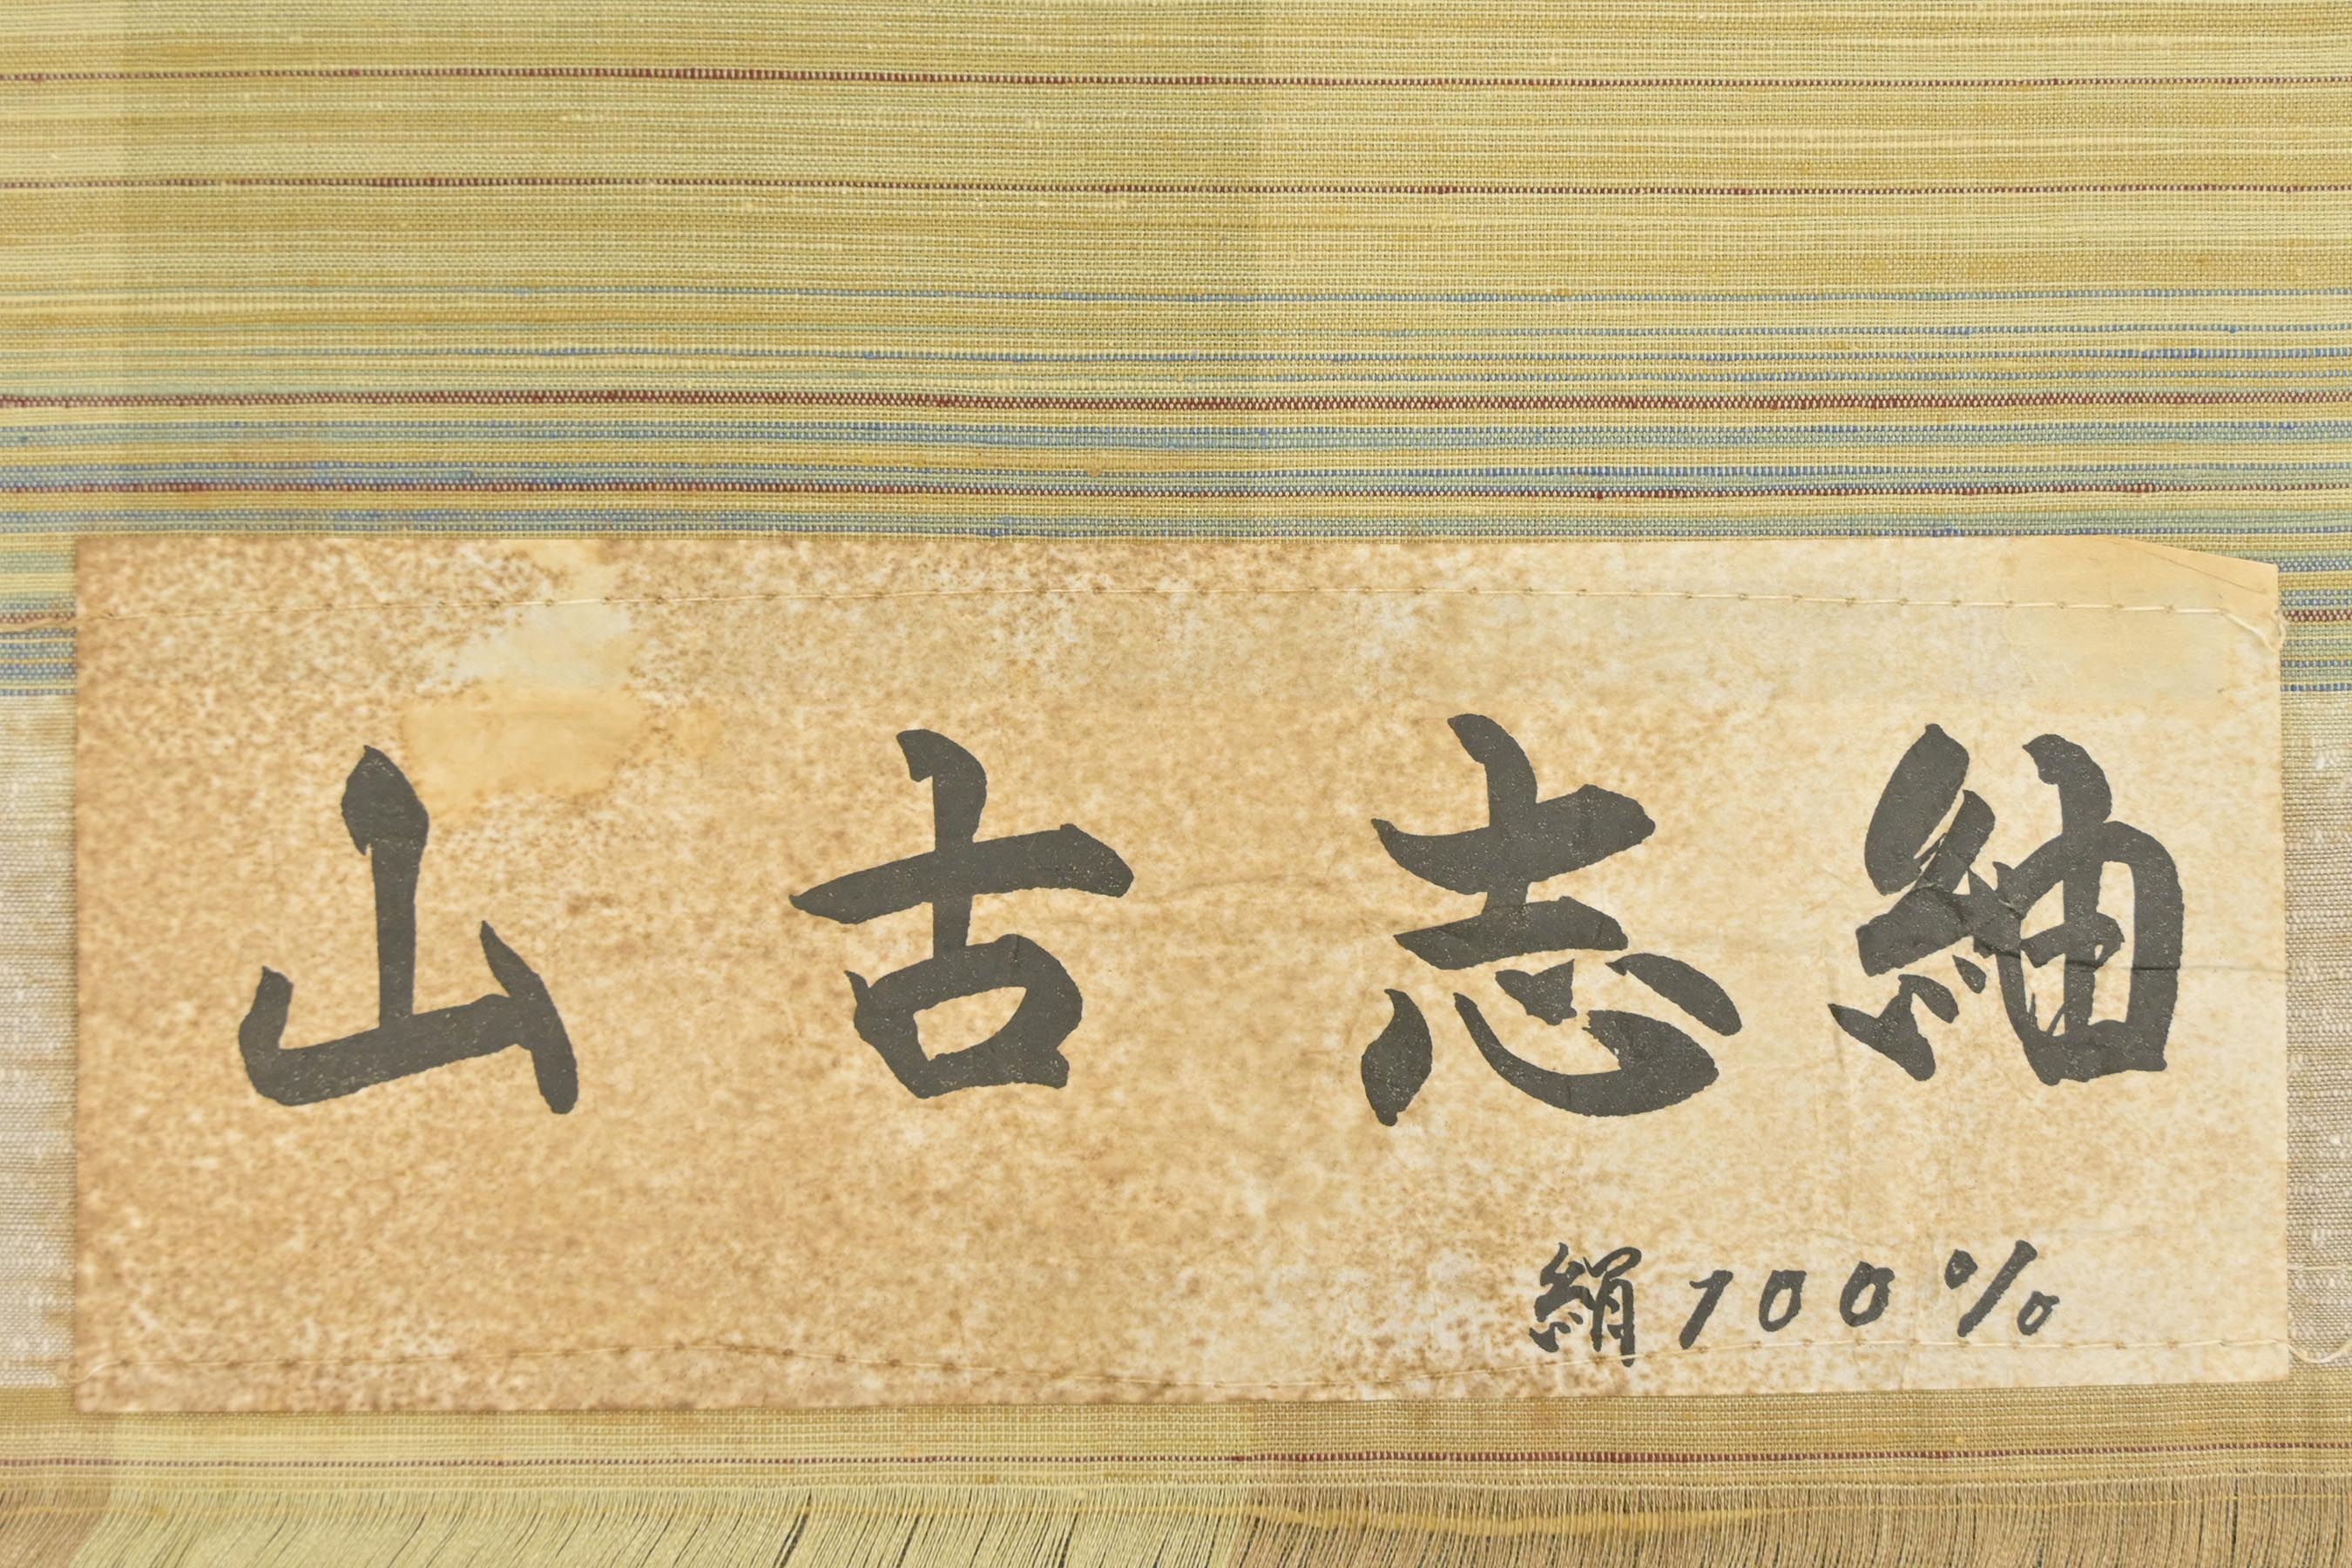 山古志紬
絹100%